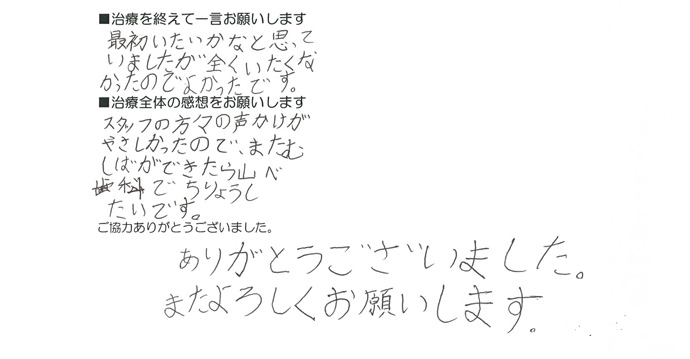 ■治療を終えて一言お願いします
最初いたいかなと思って
いましたが全くいたくな
かったのでよかったです。
■治療全体の感想をお願いします
スタッフの方々の声かけが
やさしかったので、またむ
しばができたら山べ
歯科でちりょうし
たいです。
ご協力ありがとうございました。
ありがとうございました。
またよろしくお願いします。